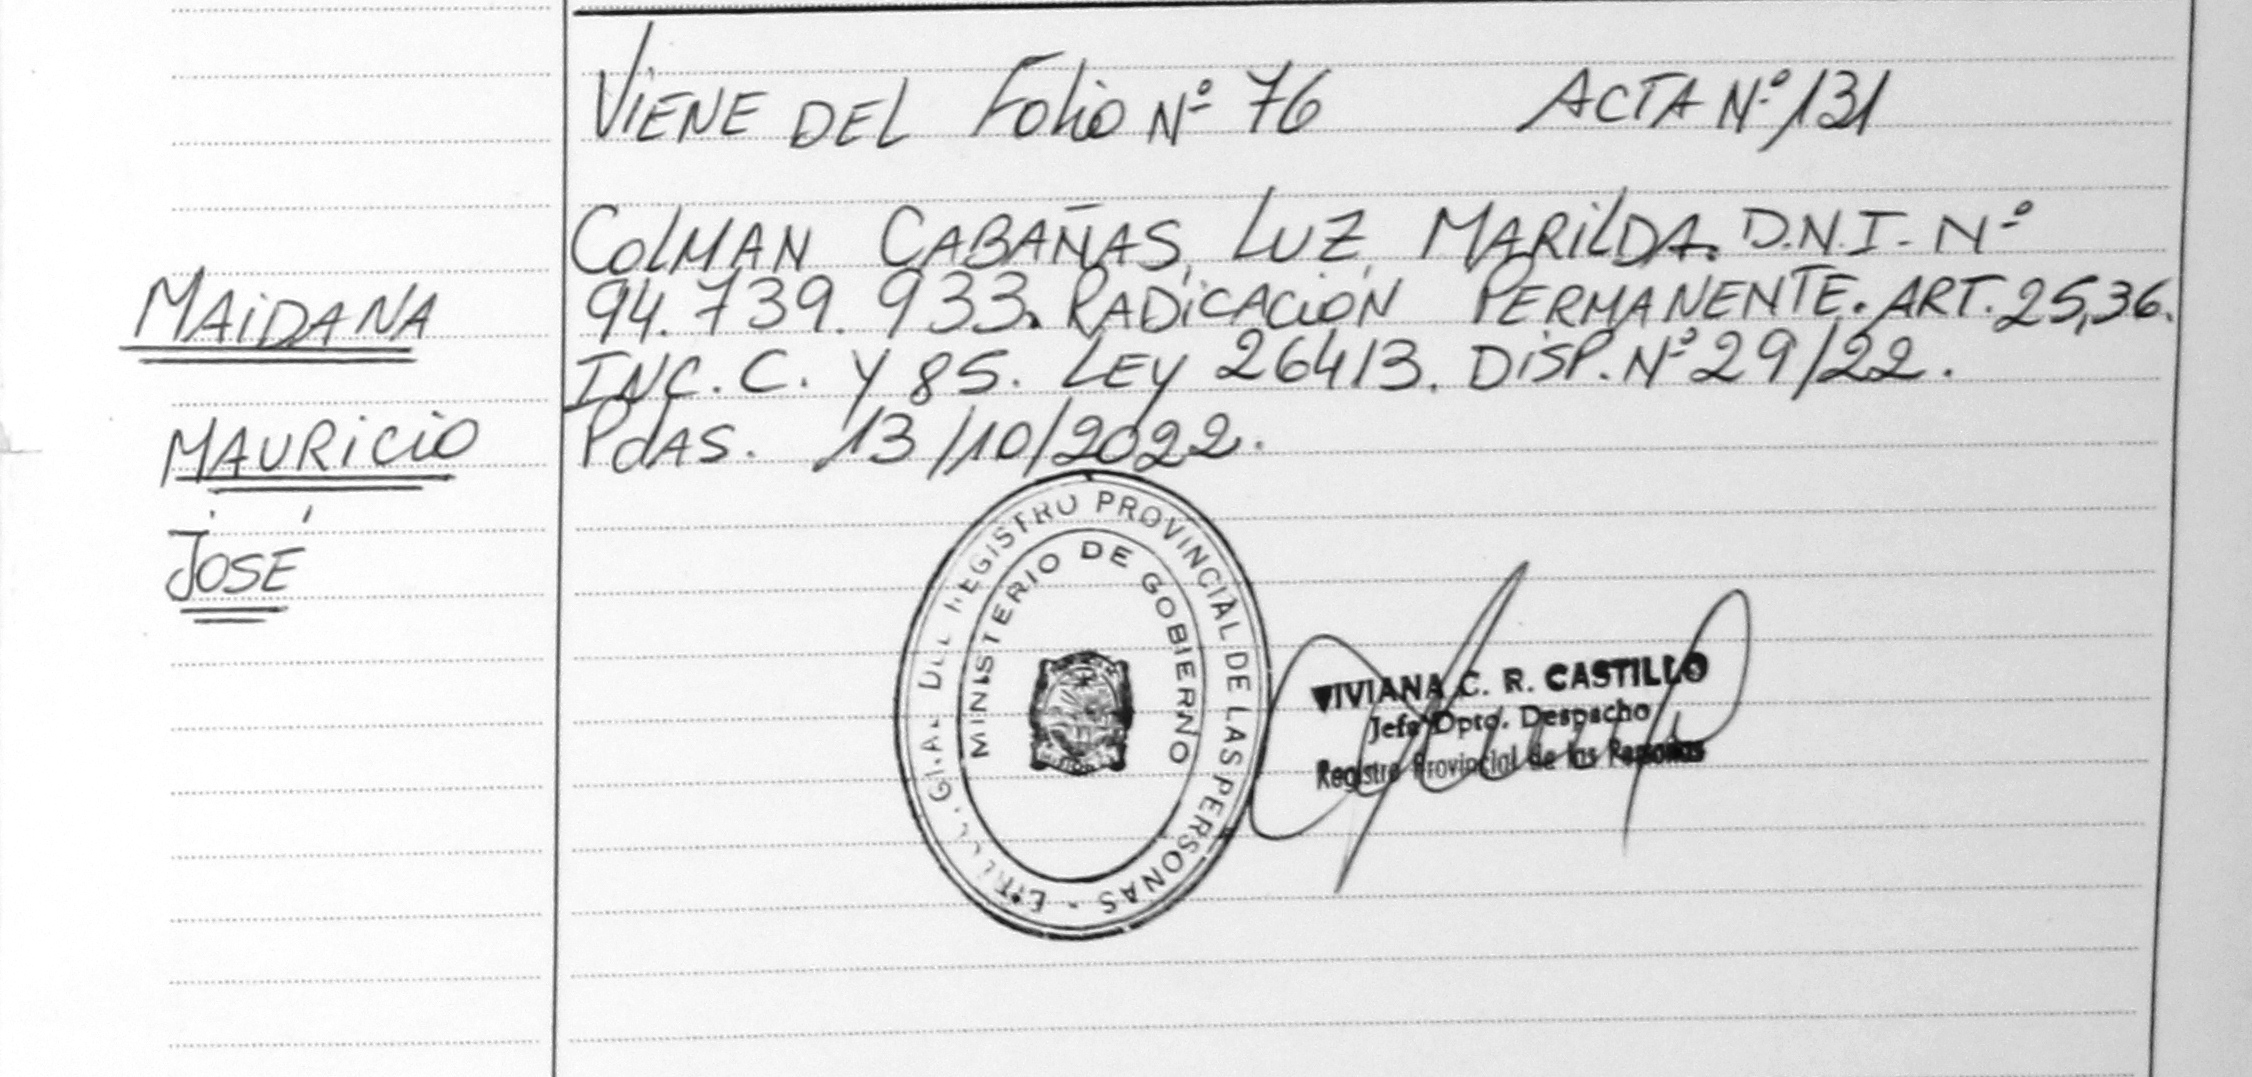 VIENE DEL Folio Nº 76 ACTA Nº 131
COLMAN CABAÑAS, LUZ MARILDA. D.N.I. Nº
94.739.933. RADICACIÓN PERMANENTE. ART. 25,36.
INC. C. Y 85. LEY 26413. DISP. Nº 29/22.
PdAS. 13/10/2022.
MAIDANA
MAURICIO
JOSÉ
REGISTRO PROVINCIAL DE LAS PERSONAS
MINISTERIO DE GOBIERNO
VIVIANA C. R. CASTILLO
Jefa Dpto. Despacho
Registro Provincial de las Personas